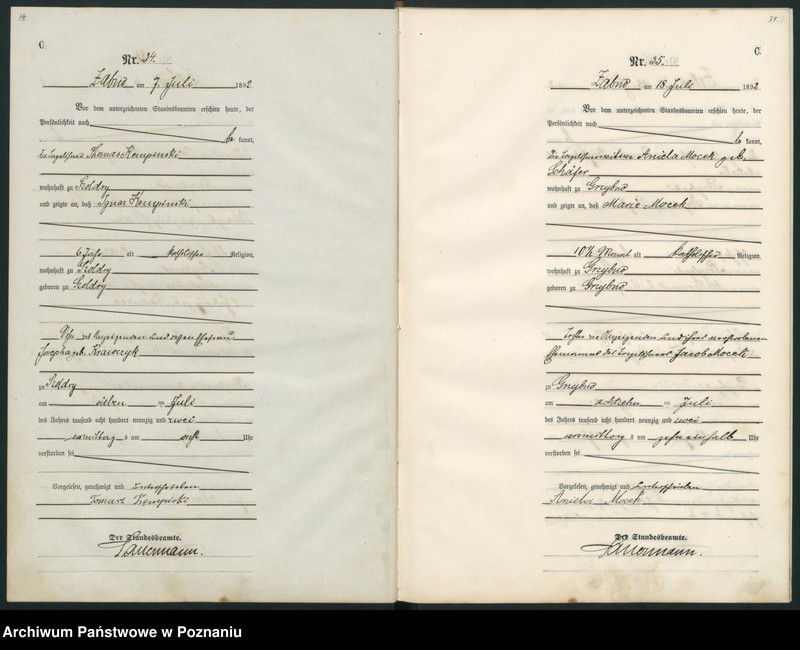 C.
Nr. 34.
Zabno am 7. Juli 1892
Vor dem unterzeichneten Standesbeamten erschien heute, der
Persönlichkeit nach
be kannt,
Thomas Kempinski
wohnhaft zu
und zeigte an, daß Ignaz Kempinski
6 Jahr alt katholischer Religion,
wohnhaft zu
geboren zu
Sohn des Anzeigenden und dessen Ehefrau
Josepha geb. Krawczyk
zu
am sieben ten Juli
des Jahres tausend acht hundert neunzig und zwei
vormittags um acht Uhr
verstorben sei
Vorgelesen, genehmigt und unterschrieben
Tomarz Kempiński
Der Standesbeamte.
34.
C.
Nr. 35.
Zabno am 18 Juli 1892
Vor dem unterzeichneten Standesbeamten erschien heute, der
Persönlichkeit nach
be kannt,
Aniela Mocek geb.
Schäfer
wohnhaft zu Grzybno
und zeigte an, daß Marie Mocek
10½ Monat alt katholischer Religion,
wohnhaft zu Grzybno
geboren zu Grzybno
Tochter der Anzeigenden und ihres verstorbenen
Ehemannes des Jacob Mocek
zu Grzybno
am achtzehn ten Juli
des Jahres tausend acht hundert neunzig und zwei
vormittags um zehn einhalb Uhr
verstorben sei
Vorgelesen, genehmigt und unterschrieben
Aniela Mocek
Der Standesbeamte.
Archiwum Państwowe w Poznaniu